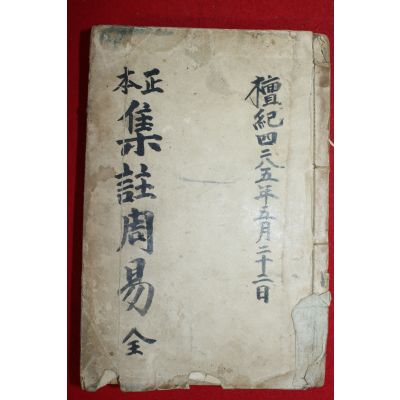 檀紀四二八五年五月二十二日
正本
集註周易 全